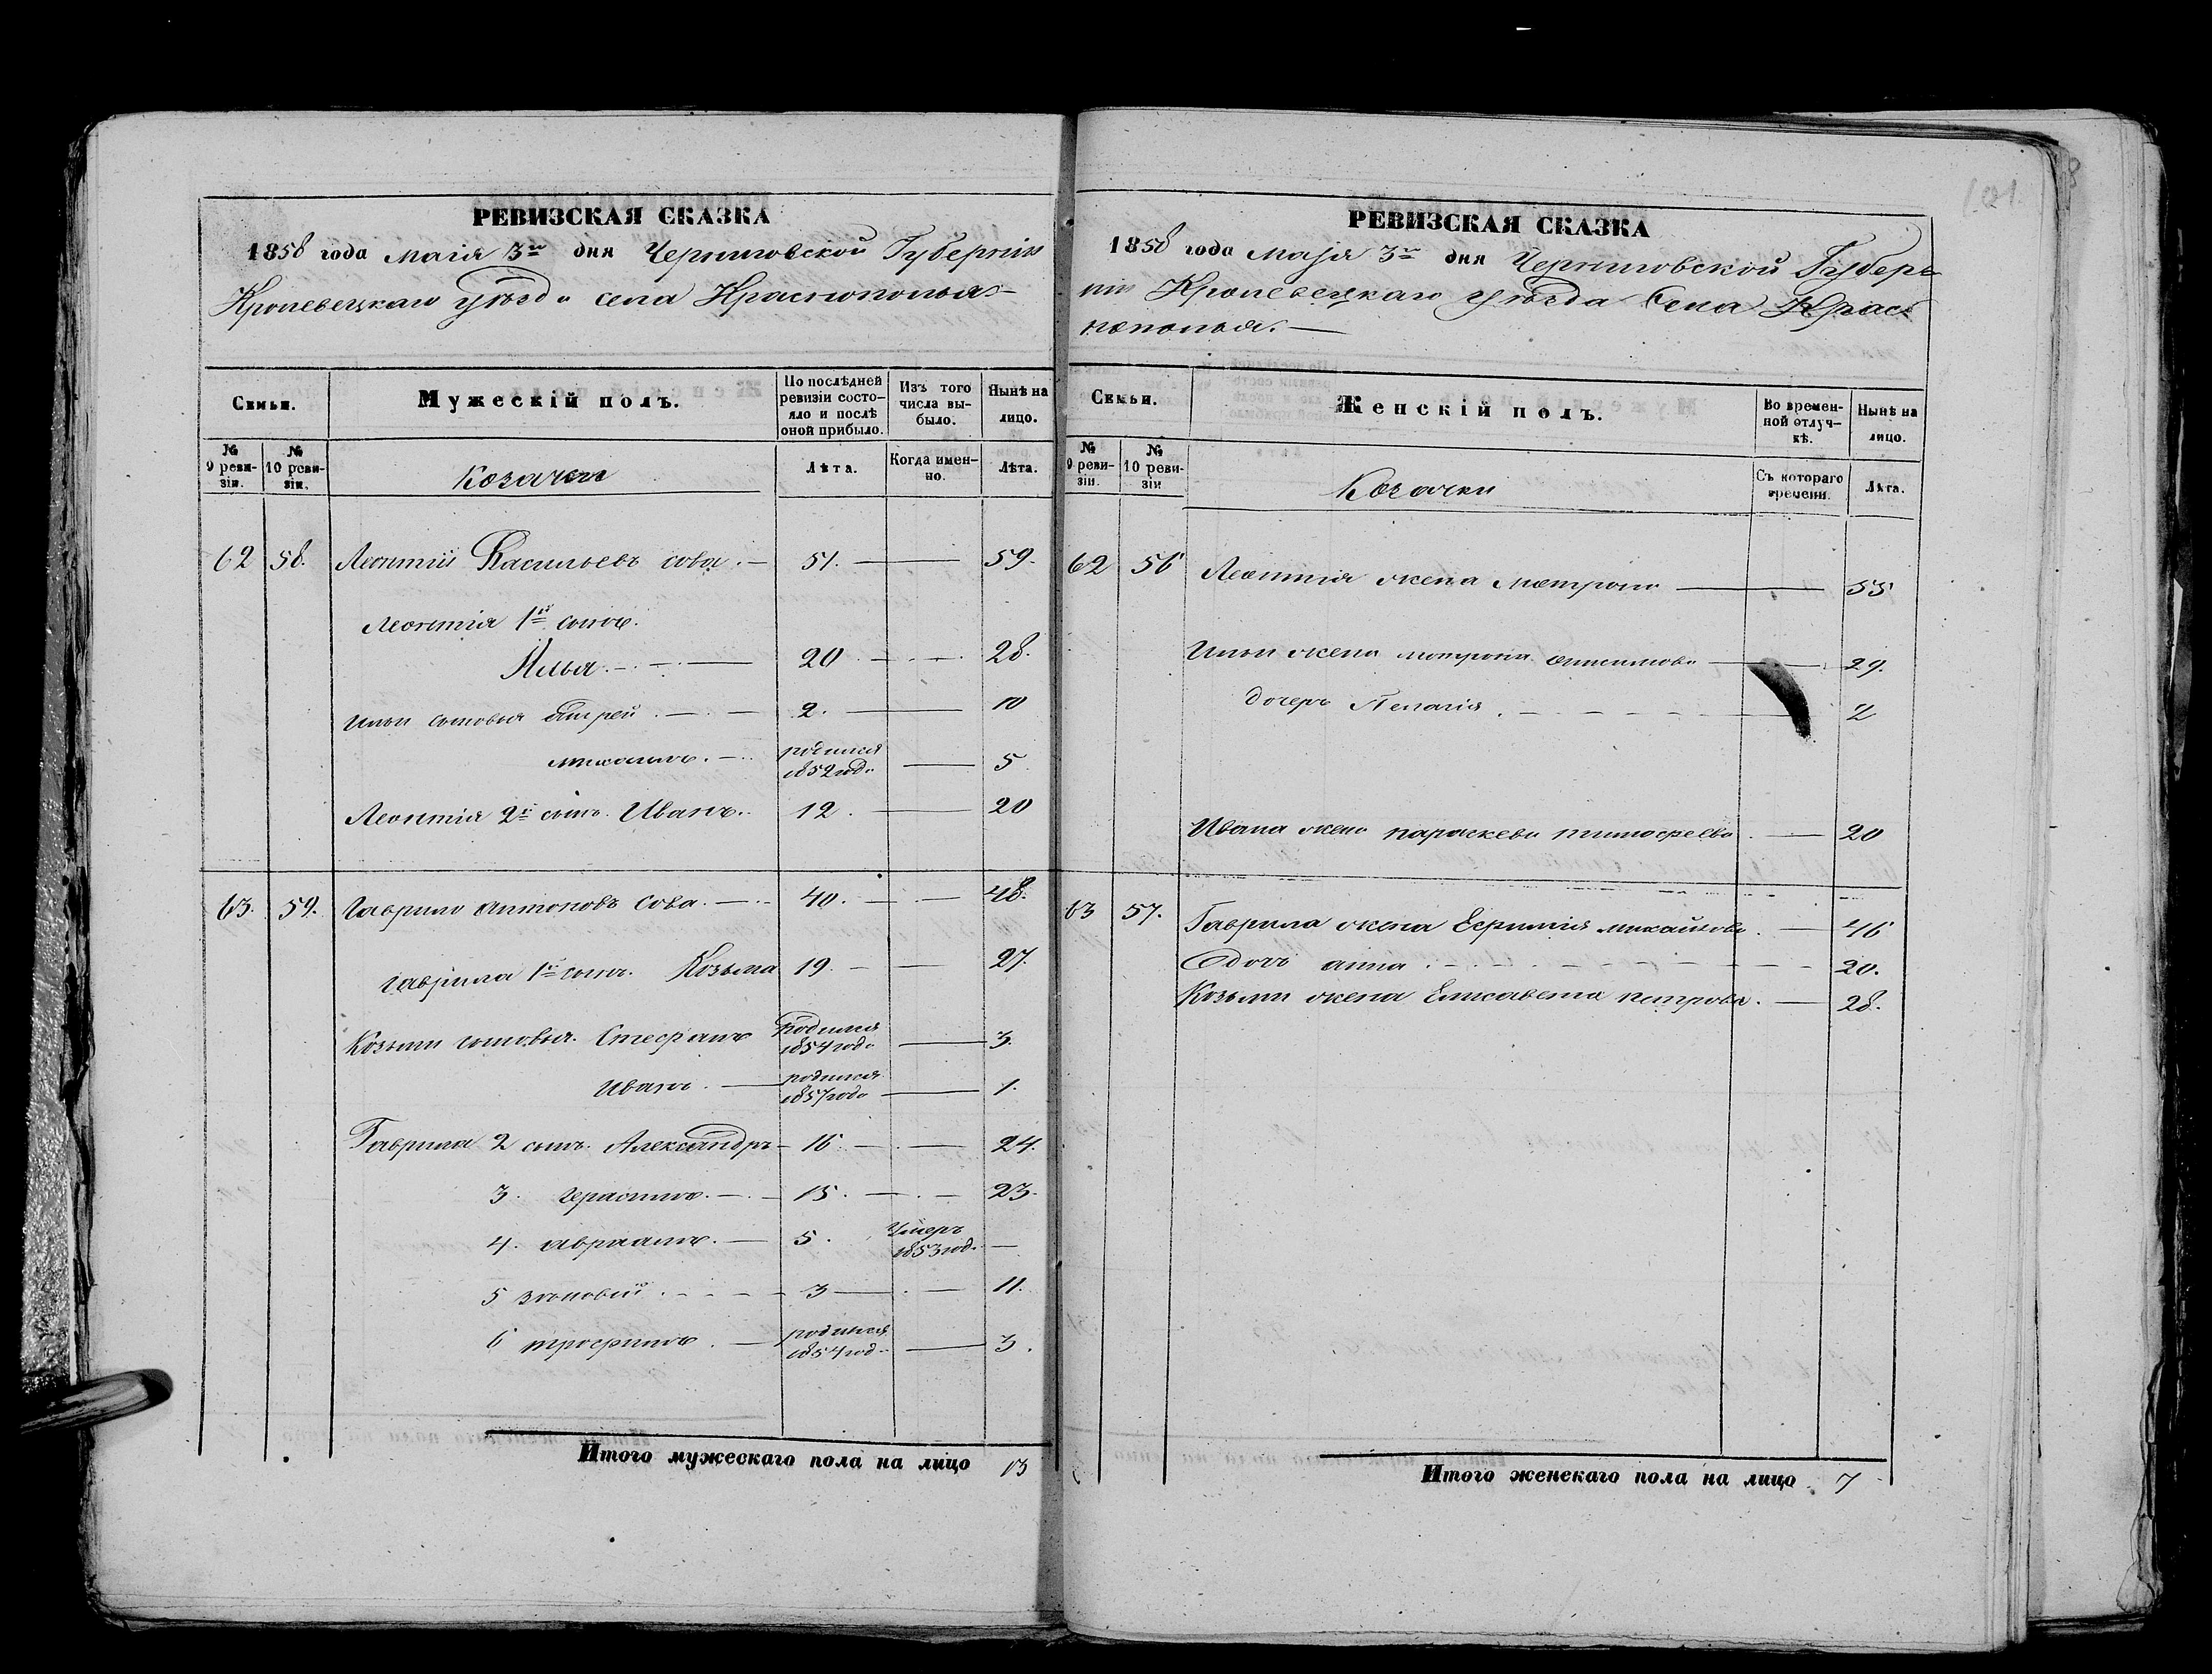 РЕВИЗСКАЯ СКАЗКА
1858 года маія 3го дня Черниговской Губерніи
Кролевецкаго уѣзда села Краснополья
Семьи.
Мужескій полъ.
По послѣдней ревизіи состояло и послѣ оной прибыло.
Изъ того числа выбыло.
Нынѣ на лицо.
№ 9 ревизіи.
№ 10 ревизіи.
Козачьи
Лѣта.
Когда именно.
Лѣта.
62 58. Леонтій Васильевъ сова. — 51. — 59.
Леонтія 1й сынъ.
Илья. — 20 — 28.
Ильи сыновья Андрей — 2. — 10
михаилъ. — родился 1852 года — 5
Леонтія 2й сынъ. Иванъ. 12. — 20
63. 59. Гаврило антоновъ Сова. — 40. — 48.
гаврила 1й сынъ. Козьма 19. — 27.
Козьми сыновья. Стефанъ родился 1854 года — 3.
Иванъ. — родился 1857 года — 1.
Гаврила 2 сынъ. Александръ — 16 — 24.
3. герасимъ. — 15. — 23.
4. авраамъ. — 5. Умеръ 1853 год. —
5 зѣновій — 3 — 11.
6 трофимъ. — родился 1854 год. — 3.
Итого мужескаго пола на лицо 13
РЕВИЗСКАЯ СКАЗКА
1858 года Маія 3го дня Черниговской Губер=
ніи Кролевецкаго уѣзда Села Крас
нополья. —
Семьи.
Женскій полъ.
Во временной отлучкѣ.
Нынѣ на лицо.
№ 9 ревизіи.
№ 10 ревизіи
Козачки
Съ котораго времени.
Лѣта.
62 56 Леонтія жена Мотрона — 55
Ильи жена мотрона онисимова — 29.
дочерь Пелагія. — 2
Ивана жена параскева тимофеева. — 20
63 57. Гаврила жена Ефимія михайлова. — 46
дочь анна — 20.
Козьми жена Елисавета петрова. — 28.
Итого женскаго пола на лицо 7